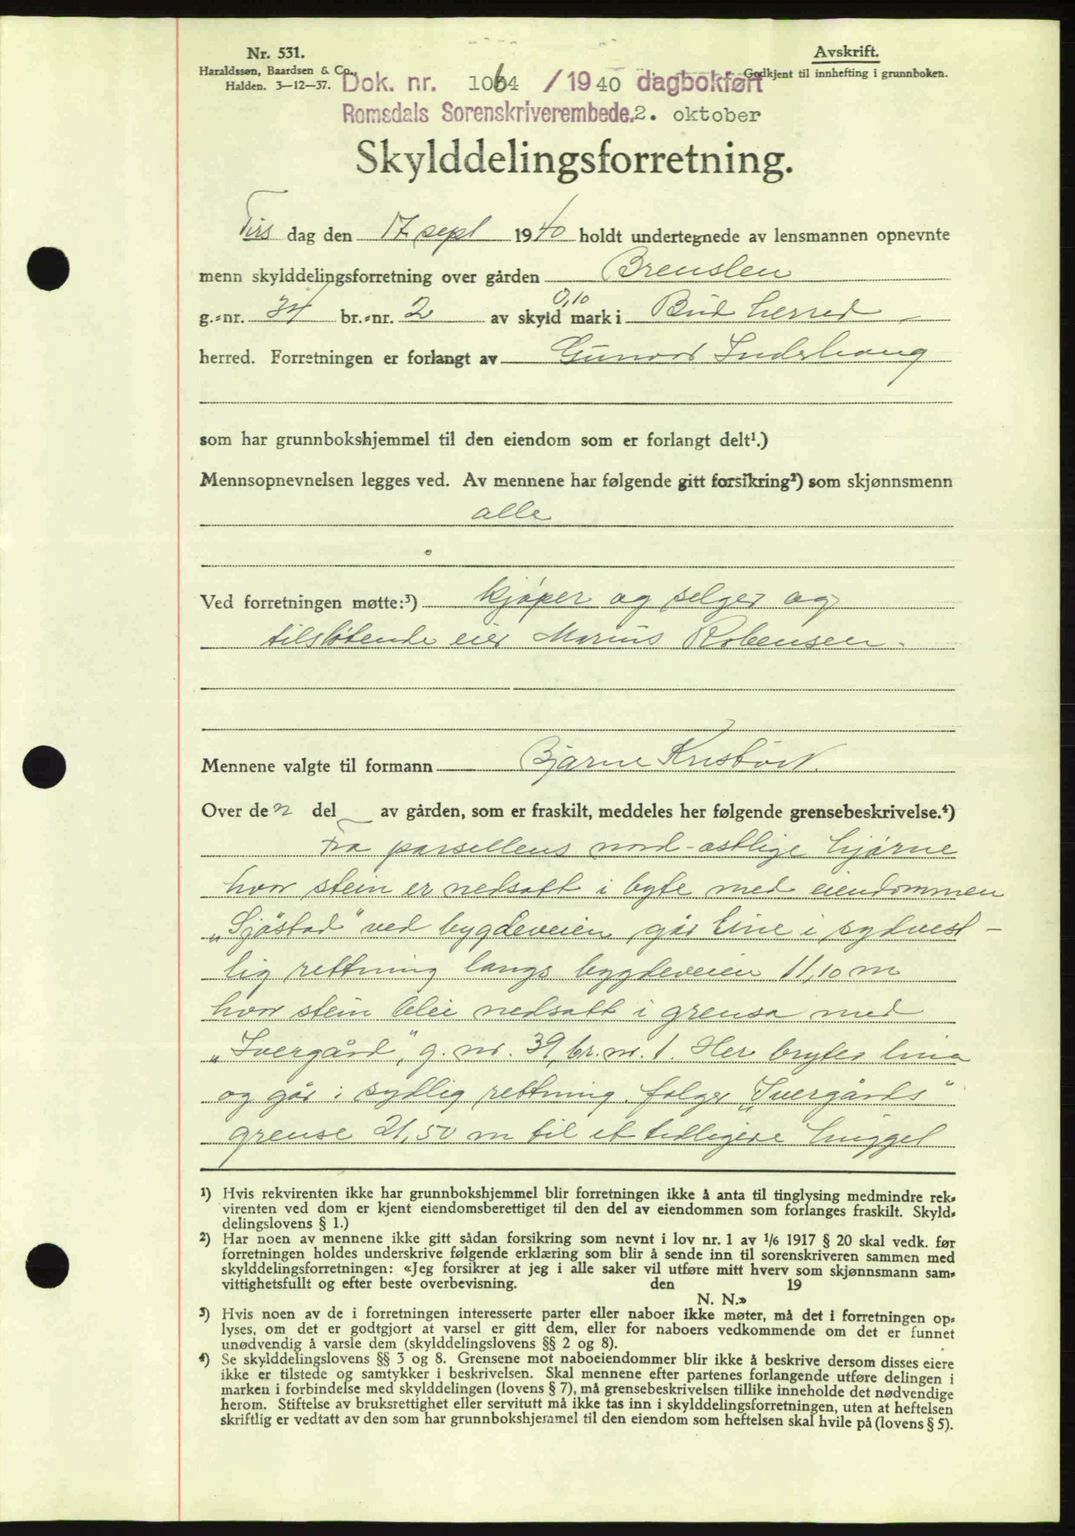 Nr. 531.
Haraldssøn, Baardsen & Co.,
Halden. 3—12—37.
Avskrift.
Godkjent til innhefting i grunnboken.
Dok. nr. 1064 /1940 dagbokført
Romsdals Sorenskriverembede. 2. oktober
Skylddelingsforretning.
Tirs dag den 17 sept 1940 holdt undertegnede av lensmannen opnevnte
menn skylddelingsforretning over gården Brenslen
g.-nr. 34 br.-nr. 2 av skyld 0,10 mark i Bud herred
herred. Forretningen er forlangt av Gunvor Inderhaug
som har grunnbokshjemmel til den eiendom som er forlangt delt¹.)
Mennsopnevnelsen legges ved. Av mennene har følgende gitt forsikring²) som skjønnsmenn
alle
Ved forretningen møtte:³) kjøper og selger og
tilstøtende eier Marius Robensen.
Mennene valgte til formann Bjarne
Over de n del av gården, som er fraskilt, meddeles her følgende grensebeskrivelse.⁴)
Fra parsellens nord-østlige hjørne
hvor stein er nedsatt i byte med eiendommen
„Sjøstad" ved bygdeveien går line i sydvest-
lig rettning langs bygdeveien 11,10 m
hvor stein blei nedsatt i grensa med
„Ivergård", g. nr. 39, br. nr. 1. Her brytes lina
og går i sydlig rettning følger „Ivergårds"
grense 21,50 m til et tidligere huggel
¹) Hvis rekvirenten ikke har grunnbokshjemmel blir forretningen ikke å anta til tinglysing medmindre rek-
virenten ved dom er kjent eiendomsberettiget til den del av eiendommen som forlanges fraskilt. Skyld-
delingslovens § 1.)
²) Har noen av mennene ikke gitt sådan forsikring som nevnt i lov nr. 1 av 1/6 1917 § 20 skal vedk. før
forretningen holdes underskrive følgende erklæring som blir å sende inn til sorenskriveren sammen med
skylddelingsforretningen: «Jeg forsikrer at jeg i alle saker vil utføre mitt hverv som skjønnsmann sam-
vittighetsfullt og efter beste overbevisning. den 19
N. N.»
³) Hvis noen av de i forretningen interesserte parter eller naboer ikke møter, må det i forretningen op-
lyses, om det er godtgjort at varsel er gitt dem, eller for naboers vedkommende om det er funnet
unødvendig å varsle dem (skylddelingslovens §§ 2 og 8).
⁴) Se skylddelingslovens §§ 3 og 8. Grensene mot naboeiendommer blir ikke å beskrive dersom disses eiere
ikke er tilstede og samtykker i beskrivelsen. Skal mennene efter partenes forlangende utføre delingen i
marken i forbindelse med skylddelingen (lovens § 7), må grensebeskrivelsen tillike inneholde det nødvendige
herom. Stiftelse av bruksrettighet eller servitutt må ikke tas inn i skylddelingsforretningen, uten at heftelsen
skriftlig er vedtatt av den som har grunnbokshjemmel til den eiendom som heftelsen skal hvile på (lovens § 5).